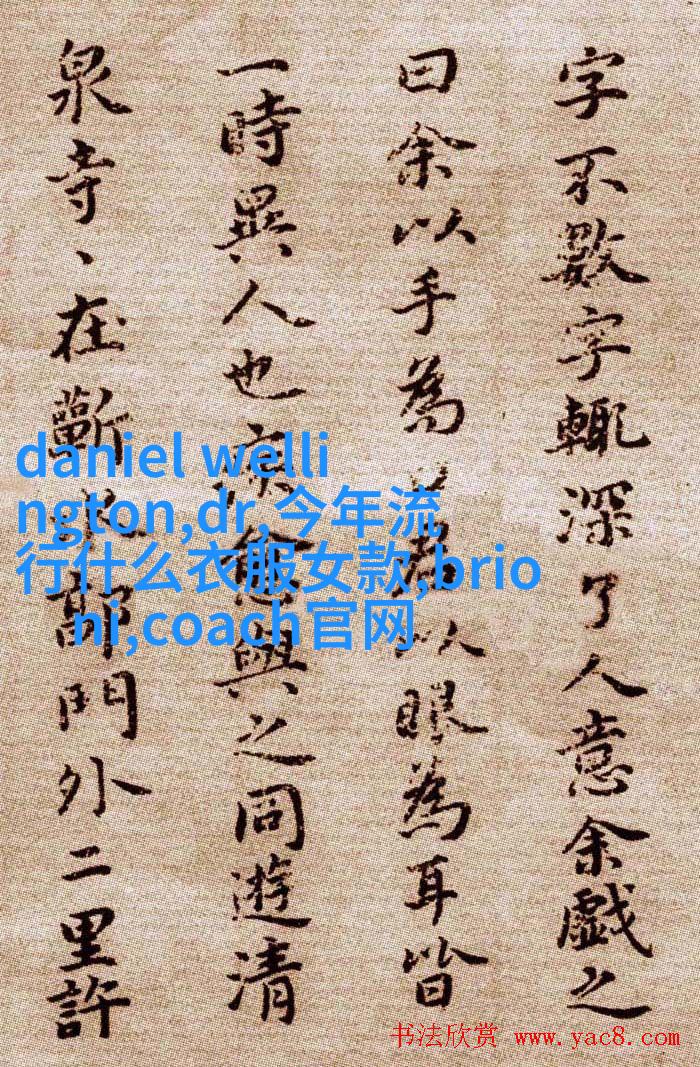 字不數字輒深了人意余戲之
曰余以手為君以眼為耳皆
一時異人也疾愈與之同遊清
泉寺、在蘄水郭門外二里許
daniel welli
ngton,dr,今年流
行什么衣服女款,brio
ni,coach官网
书法欣赏 www.yac8.com